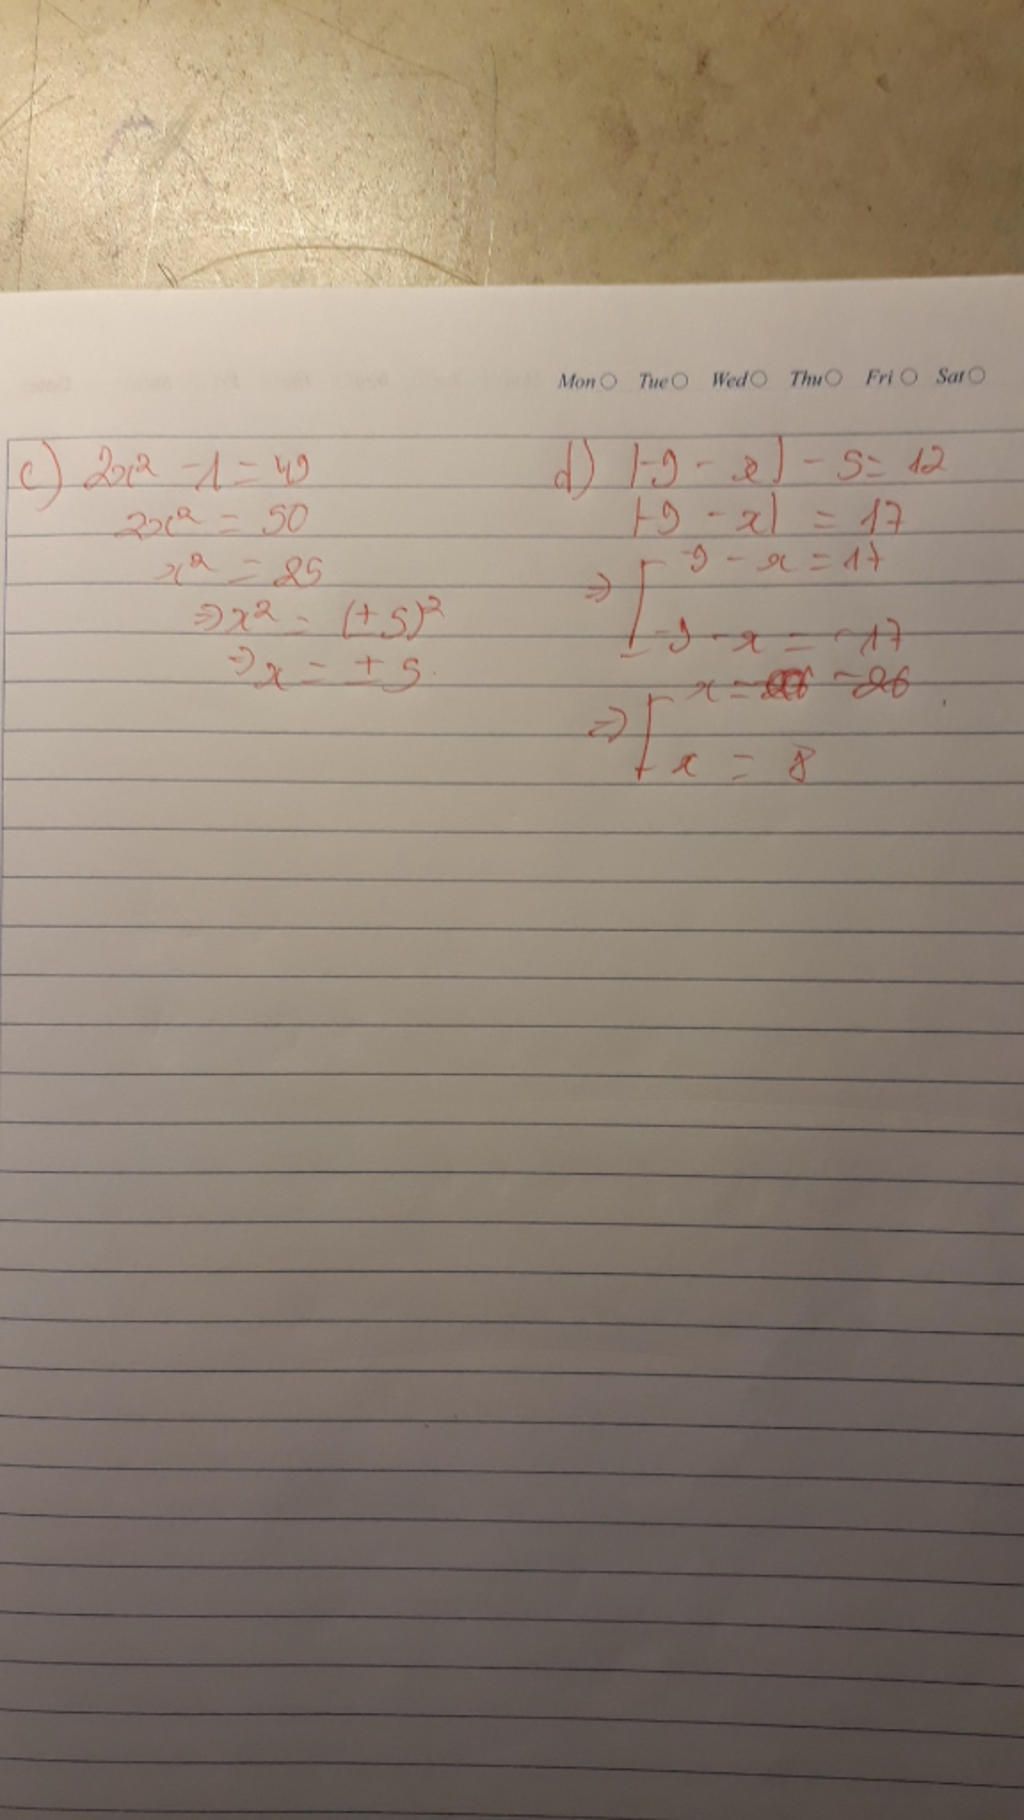 Mon Tue Wed Thu Fri Sat
c) 2x² - 1 = 49
2x² = 50
x² = 25
⇒ x² = (±5)²
⇒ x = ±5.
d) |-9 - x| - 5 = 12
|-9 - x| = 17
⇒ [ -9 - x = 17
-9 - x = -17
⇒ [ x = -26
x = 8